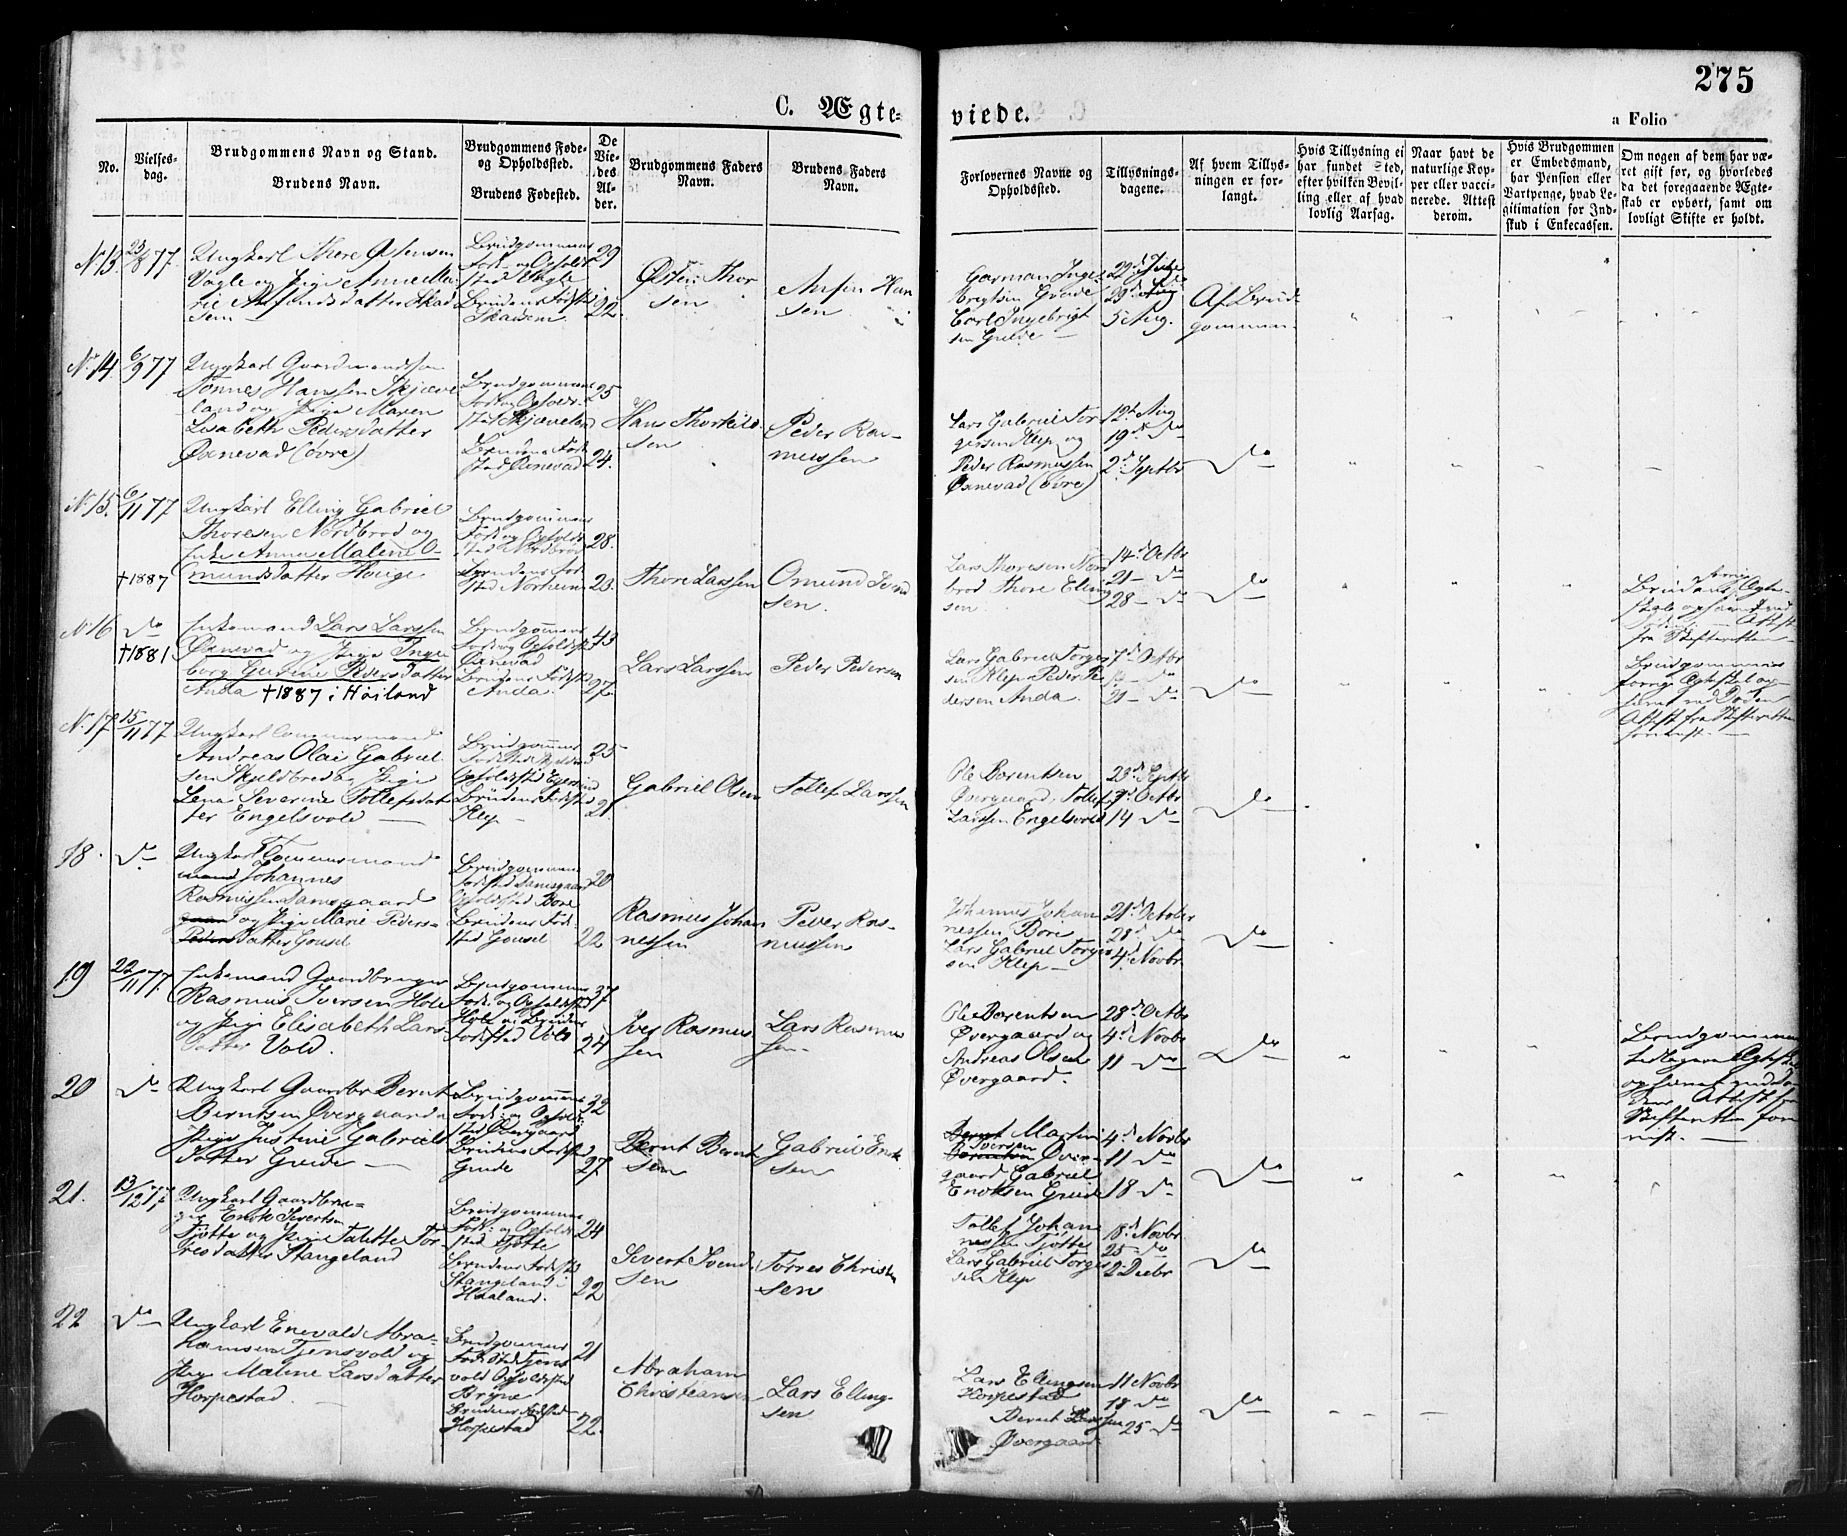 275
C. Ægte-
viede.
a Folio
No.
Vielses-
dag.
Brudgommens Navn og Stand.
Brudens Navn.
Brudgommens Føde-
og Opholdssted.
Brudens Fødested.
De
Vie-
des
Al-
der.
Brudgommens Faders
Navn.
Brudens Faders
Navn.
Forlovernes Navne og
Opholdssted.
Tillysnings-
dagene.
Af hvem Tillys-
ningen er for-
langt.
Hvis Tillysning ei
har fundet Sted,
efter hvilken Bevil-
ling eller af hvad
lovlig Aarsag.
Naar havt de
naturlige Kop-
per eller vacci-
nerede. Attest
derom.
Hvis Brudgommen
er Embedsmand,
har Pension eller
Vartpenge, hvad Le-
gitimation for Ind-
skud i Enkecassen.
Om nogen af dem har væ-
ret gift før, og hvorledes
da det foregaaende Ægte-
skab er ophørt, samt om
lovligt Skifte er holdt.
No 13
23/8 77
Ungkarl Thore Østensen
Vagle og Pige Anne Ma-
rie Ansfindsdatter Skad
sem
Brudgommens
Føde- og Opholds
sted Vagle
Brudens Fødested
Skadsem.
29
22.
Østen Thor
sen
Han
sen
Garman Inge-
bregtsen Grude
Carl Ingebrigt
sen Grude
29d Juli
5 Aug.
Af Brud-
gommen
No 14
6/9 77
Ungkarl Gaardmandssøn
Tønnes Hanssen Skjæve
land og Pige Maren
Lisabeth Pedersdatter
Øxnevad (øvre)
Brudgommens
Føde og Opholds-
sted Skjæveland
Brudens Føde
sted Øxnevad
25
24.
Hans Thorkild
sen
Peder Ras-
mussen
Lars Gabriel Tor
gersen Klep og
Peder Rasmussen
Øxnevad (øvre)
12t Aug
19d do
2d Septbr
do
No 15.
6/11 77
† 1887
Ungkarl Elling Gabriel
Thoresen Nordbrod og
Enke Anna Malene O-
mundsdatter Houge
Brudgommens
Føde og Opholds
sted Nordbrod
Brudens Føde
sted Norheim
28.
23.
Thore Larssen
Omund
sen.
Lars Thoresen Nord
brod Thore Elling
sen
14d Octbr
21 - do
28 - do
do
Brudens forrige Ægte-
No 16
do
† 1881
Enkemand Lars Larssen
Øxnevad og Pige Inge
borg Gurine Pedersdatter
Anda † 1887 i Høiland
Brudgommens
Føde og Opholdsst.
Øxnevad
Brudens Fødested
Anda.
43
27.
Lars Larssen
Peder Pedersen
Lars Gabriel Torger
sen Klep Peder Pe
dersen Anda
7d Octbr
14 - do
21 - do
do
Brudgommens
forrige Ægteskab op-
hævet ved Døden
Attest fra Skifteretten
forevist.
No 17
15/11 77
Ungkarl Tømmermand
Andreas Olai Gabriel
sen Skjeldbred og Pige
Lena Severine Tollefsdat
ter Engelsvold
Brudgommens
Opholdssted Egersund
Brudens Fødested
Klep
25
21.
Gabriel Olsen
Tollef Larssen
Ole Berentsen
Øvergaard, Tollef
Larssen Engelsvold
23d Septbr
7d Octbr
14 do
do
18.
do
Ungkarl Tømmermand
mand Johannes
Rasmussen Damsgaard
gaard og Pige Marie Peders-
Pedersdatter Gousel
Brudgommens
Fødested Damsgaard
Opholdssted Bore
Brudens Føde
sted Gousel
20
22
Rasmus Johan
nessen
Peder Ras-
mussen
Johannes Johan
nessen Bore
Lars Gabriel Torger
sen Klep
21d October
28d do
4d Novbr
do
19
22/11 77
Enkemand Gaardbruger
Rasmus Iversen Hole
og Pige Elisabeth Lars-
datter Vold.
Brudgommens
Føde- og Opholdssted
Hole og Brudens
Fødested Vold
37
24
Iver Rasmus
sen
Lars Rasmus
sen
Ole Berentsen
Øvergaard og
Andreas Olsen
Øvergaard.
28d Octbr
4d Novbr
11 do
do
Brudgommens
tidligere Ægteskab
20
do
Ungkarl Gaardbr Bernt
Berntsen Øvergaard og
Pige Justine Gabriels
datter Grude
Brudgommens
Føde- og Opholds
sted Øvergaard
Brudens Fødested
Grude
32
27
Bernt Bernt
sen
Gabriel Enok
sen
Bernt Martin
Iversen
Berntsen Øver-
gaard Gabriel
Enoksen Grude
4d Novbr
11 do
18 do
do
21.
13/12 77
Ungkarl Gaardbru-
ger Enok Sivertsen
Tjøtte og Pige Talette Tor-
resdatter Stangeland
Brudgommens
Føde- og Opholds
sted Tjøtte
Brudens Fødested
Stangeland i
Haaland.
24
22
Sivert Svend
sen
Torres Christen
sen
Tollef Johan
nessen Tjøtte
Lars Gabriel Torger
sen Klep
18d Novbr
25 - do
2 Decbr
do
22
do
Ungkarl Enevald Abra-
hamsen Tjensvold og
Pige Malene Larsdatter
Horpestad.
Brudgommens
Fødested Tjens
vold Opholdssted
Bryne
Brudens Fødested
Horpestad
21
22.
Abraham
Christiansen
Lars Elling-
sen
Lars Ellingsen
Horpestad
Bernt Larssen
Øvergaard.
11 Novbr
18 do
25 do
do